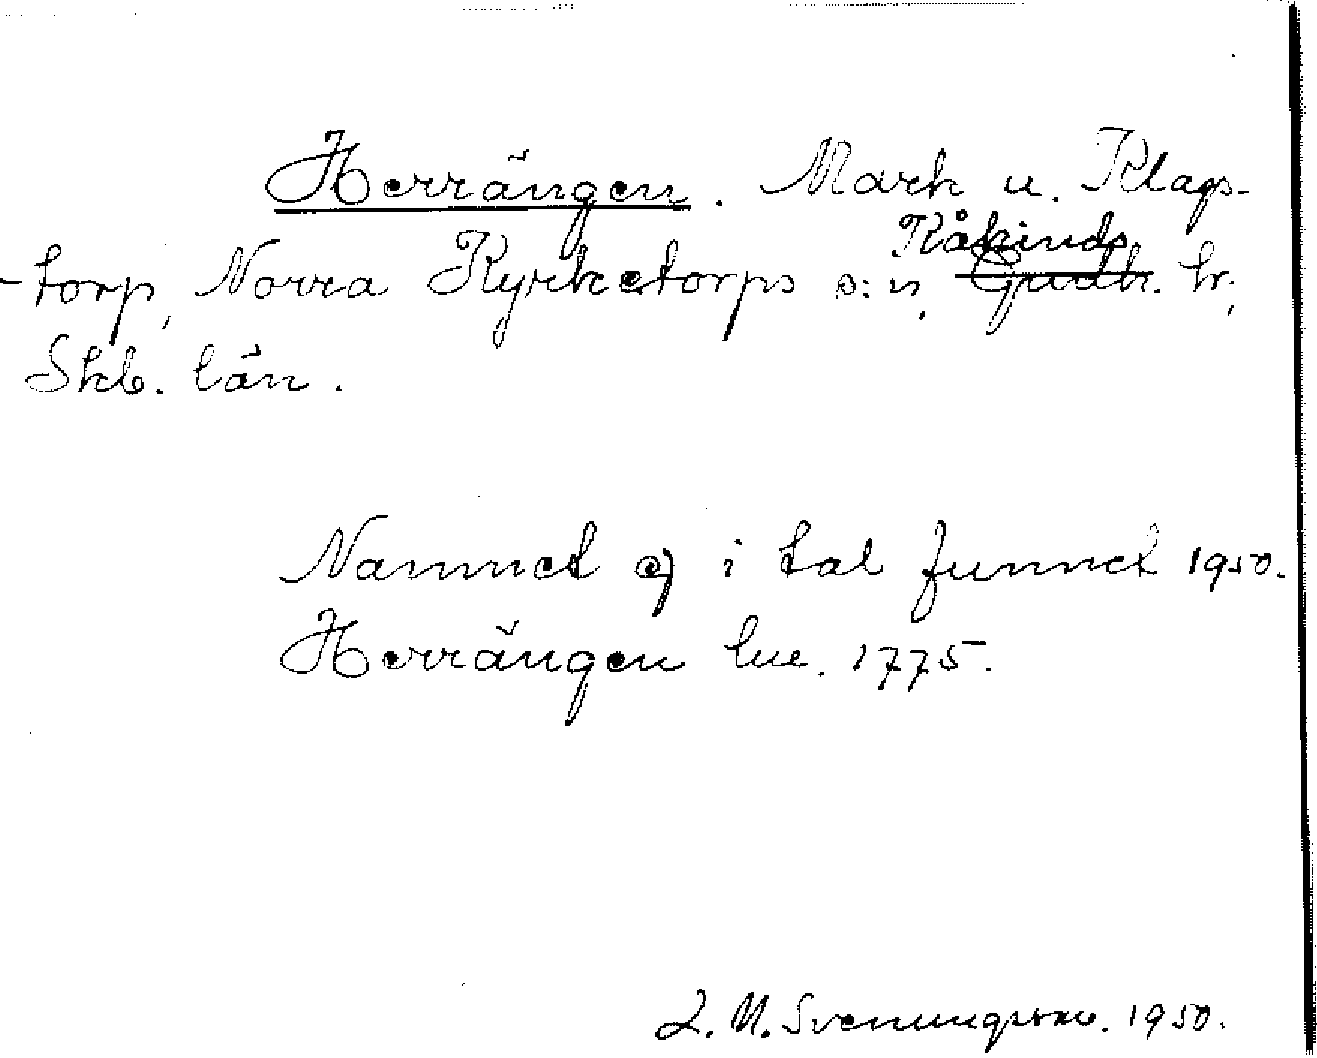 Herrängen. Mark u. Klags-
Kåkinds
-torp, Norra Kyrketorps s:n, Gudh. hr.,
Skb. län.
Namnet ej i tal funnet 1950.
Herrängen lue. 1775.
Svenungsson. 1950.